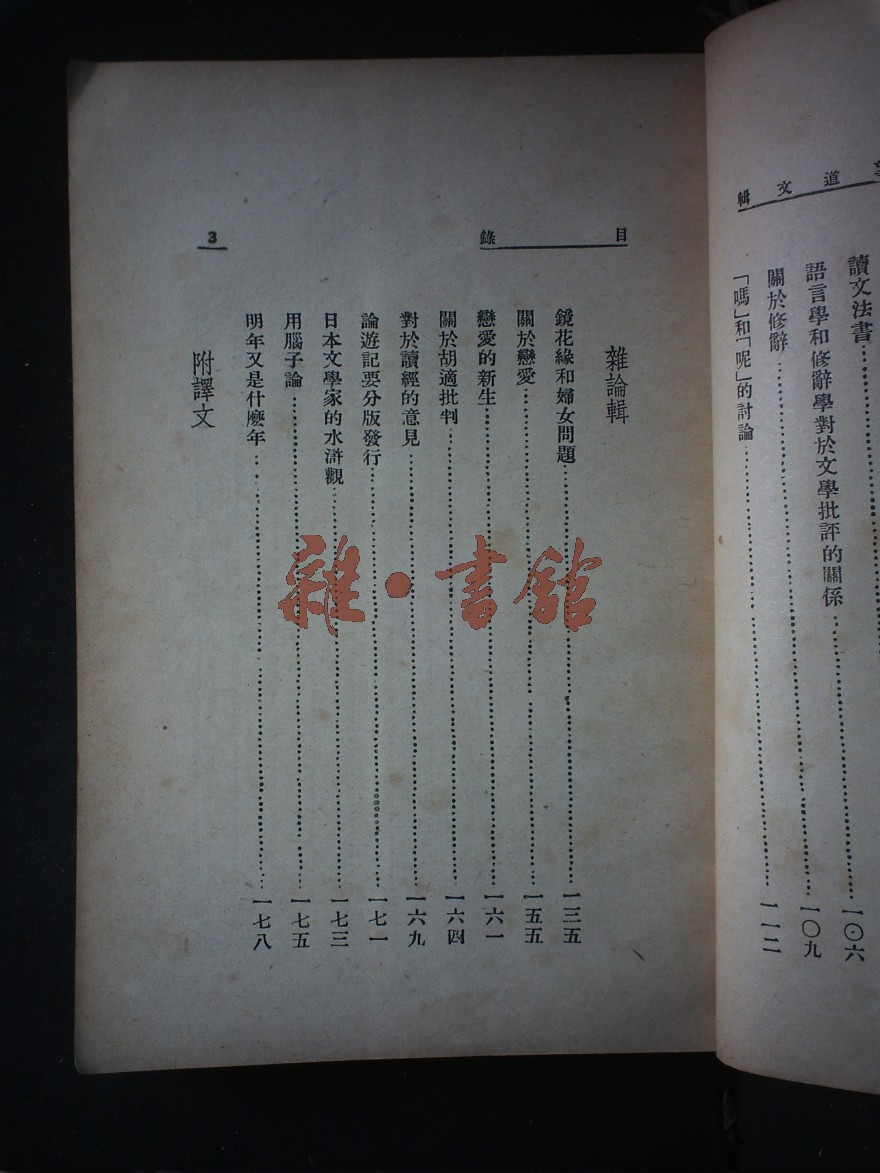 道文輯
讀文法書……一〇六
語言學和修辭學對於文學批評的關係……一〇九
關於修辭……一一二
「嗎」和「呢」的討論……
目錄
3
雜論輯
鏡花緣和婦女問題……一三五
關於戀愛……一五五
戀愛的新生……一六一
關於胡適批判……一六四
對於讀經的意見……一六九
論遊記要分版發行……一七一
日本文學家的水滸觀……一七三
用腦子論……一七五
明年又是什麼年……一七八
附譯文
雜·書館